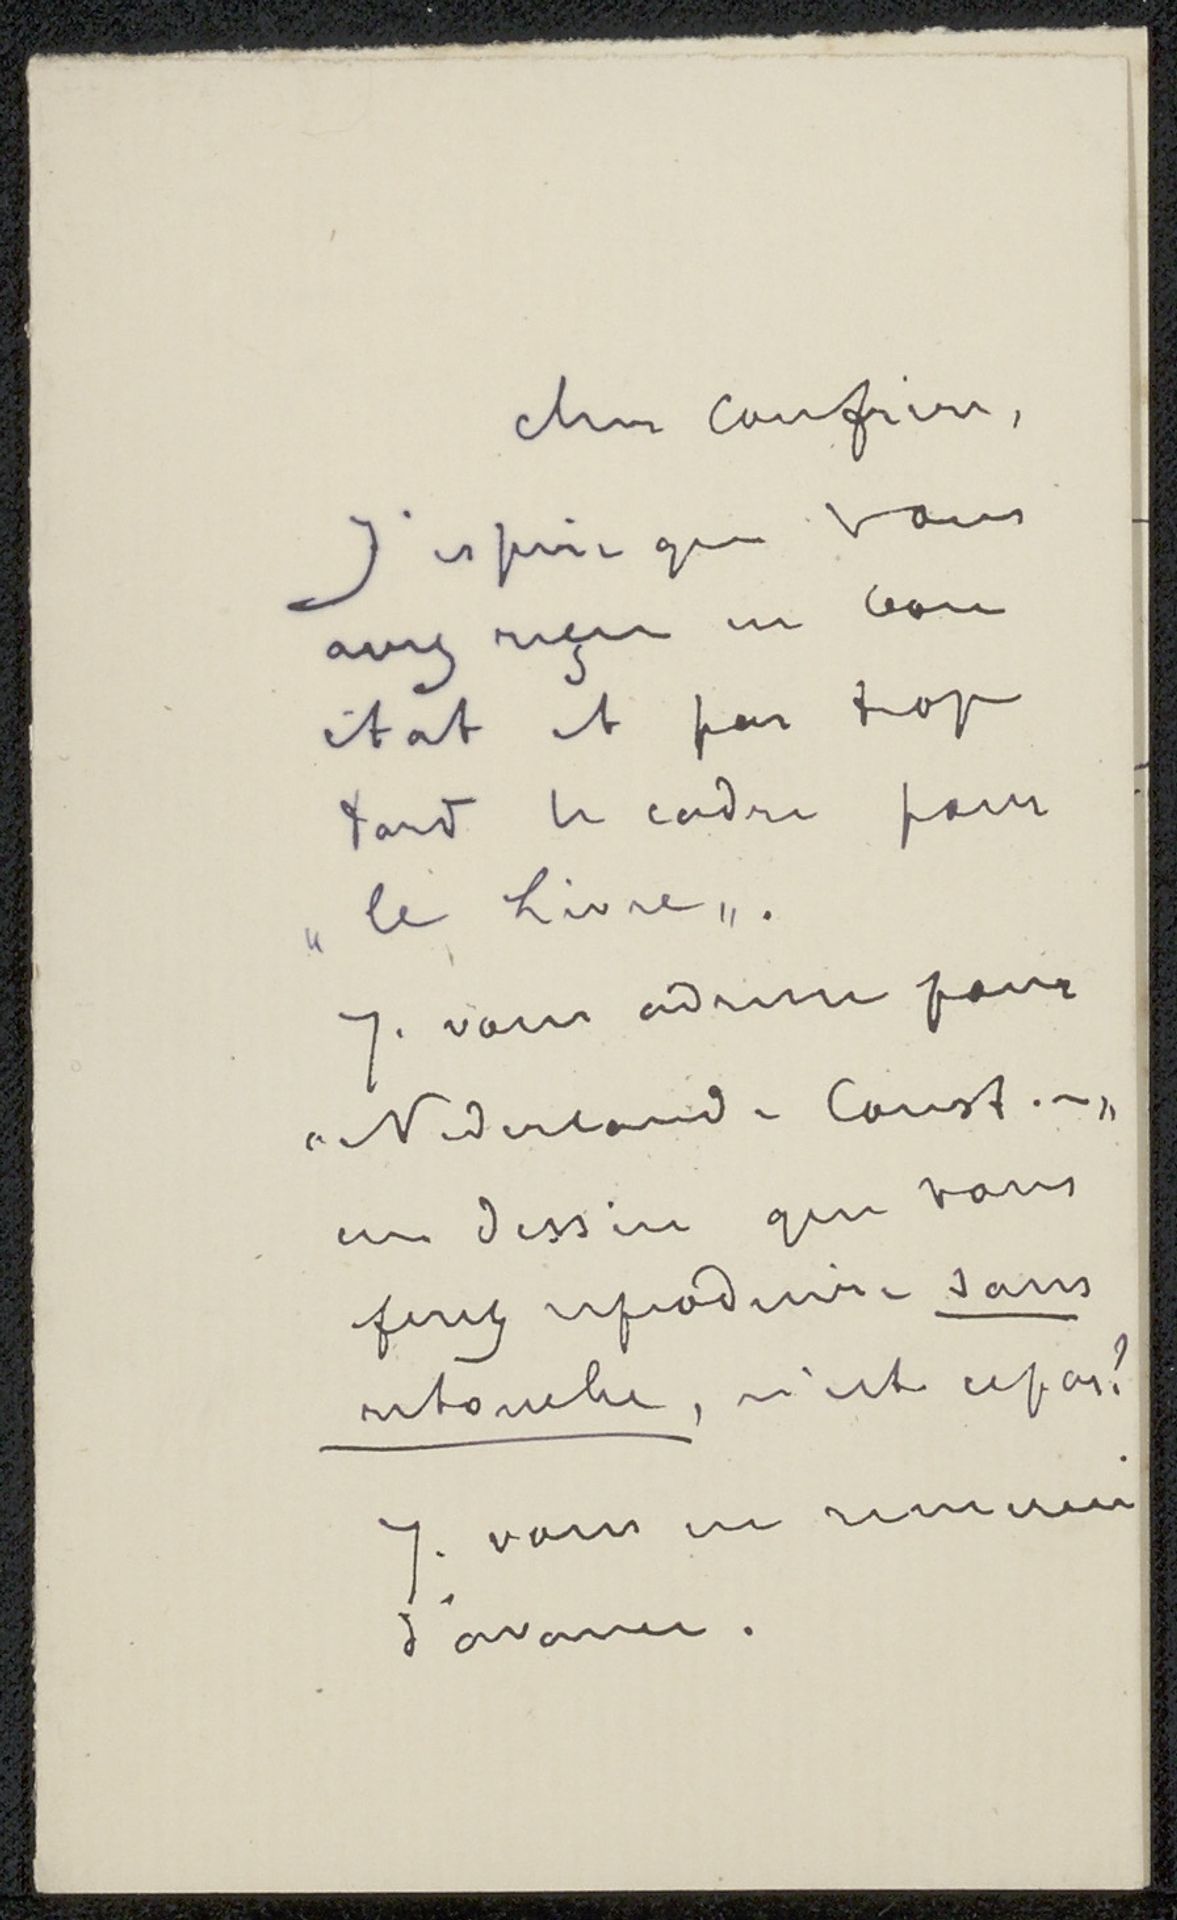 cher confrère,
J'espère que vous
avez reçu en bon
état et pas trop
tard le cadre pour
„le Livre„.
Je vous adresse pour
„Nederlande Coust...„
un dessin que vous
ferez reproduire sans
retouche, n'est ce pas?
Je vous en remercie
d'avance.